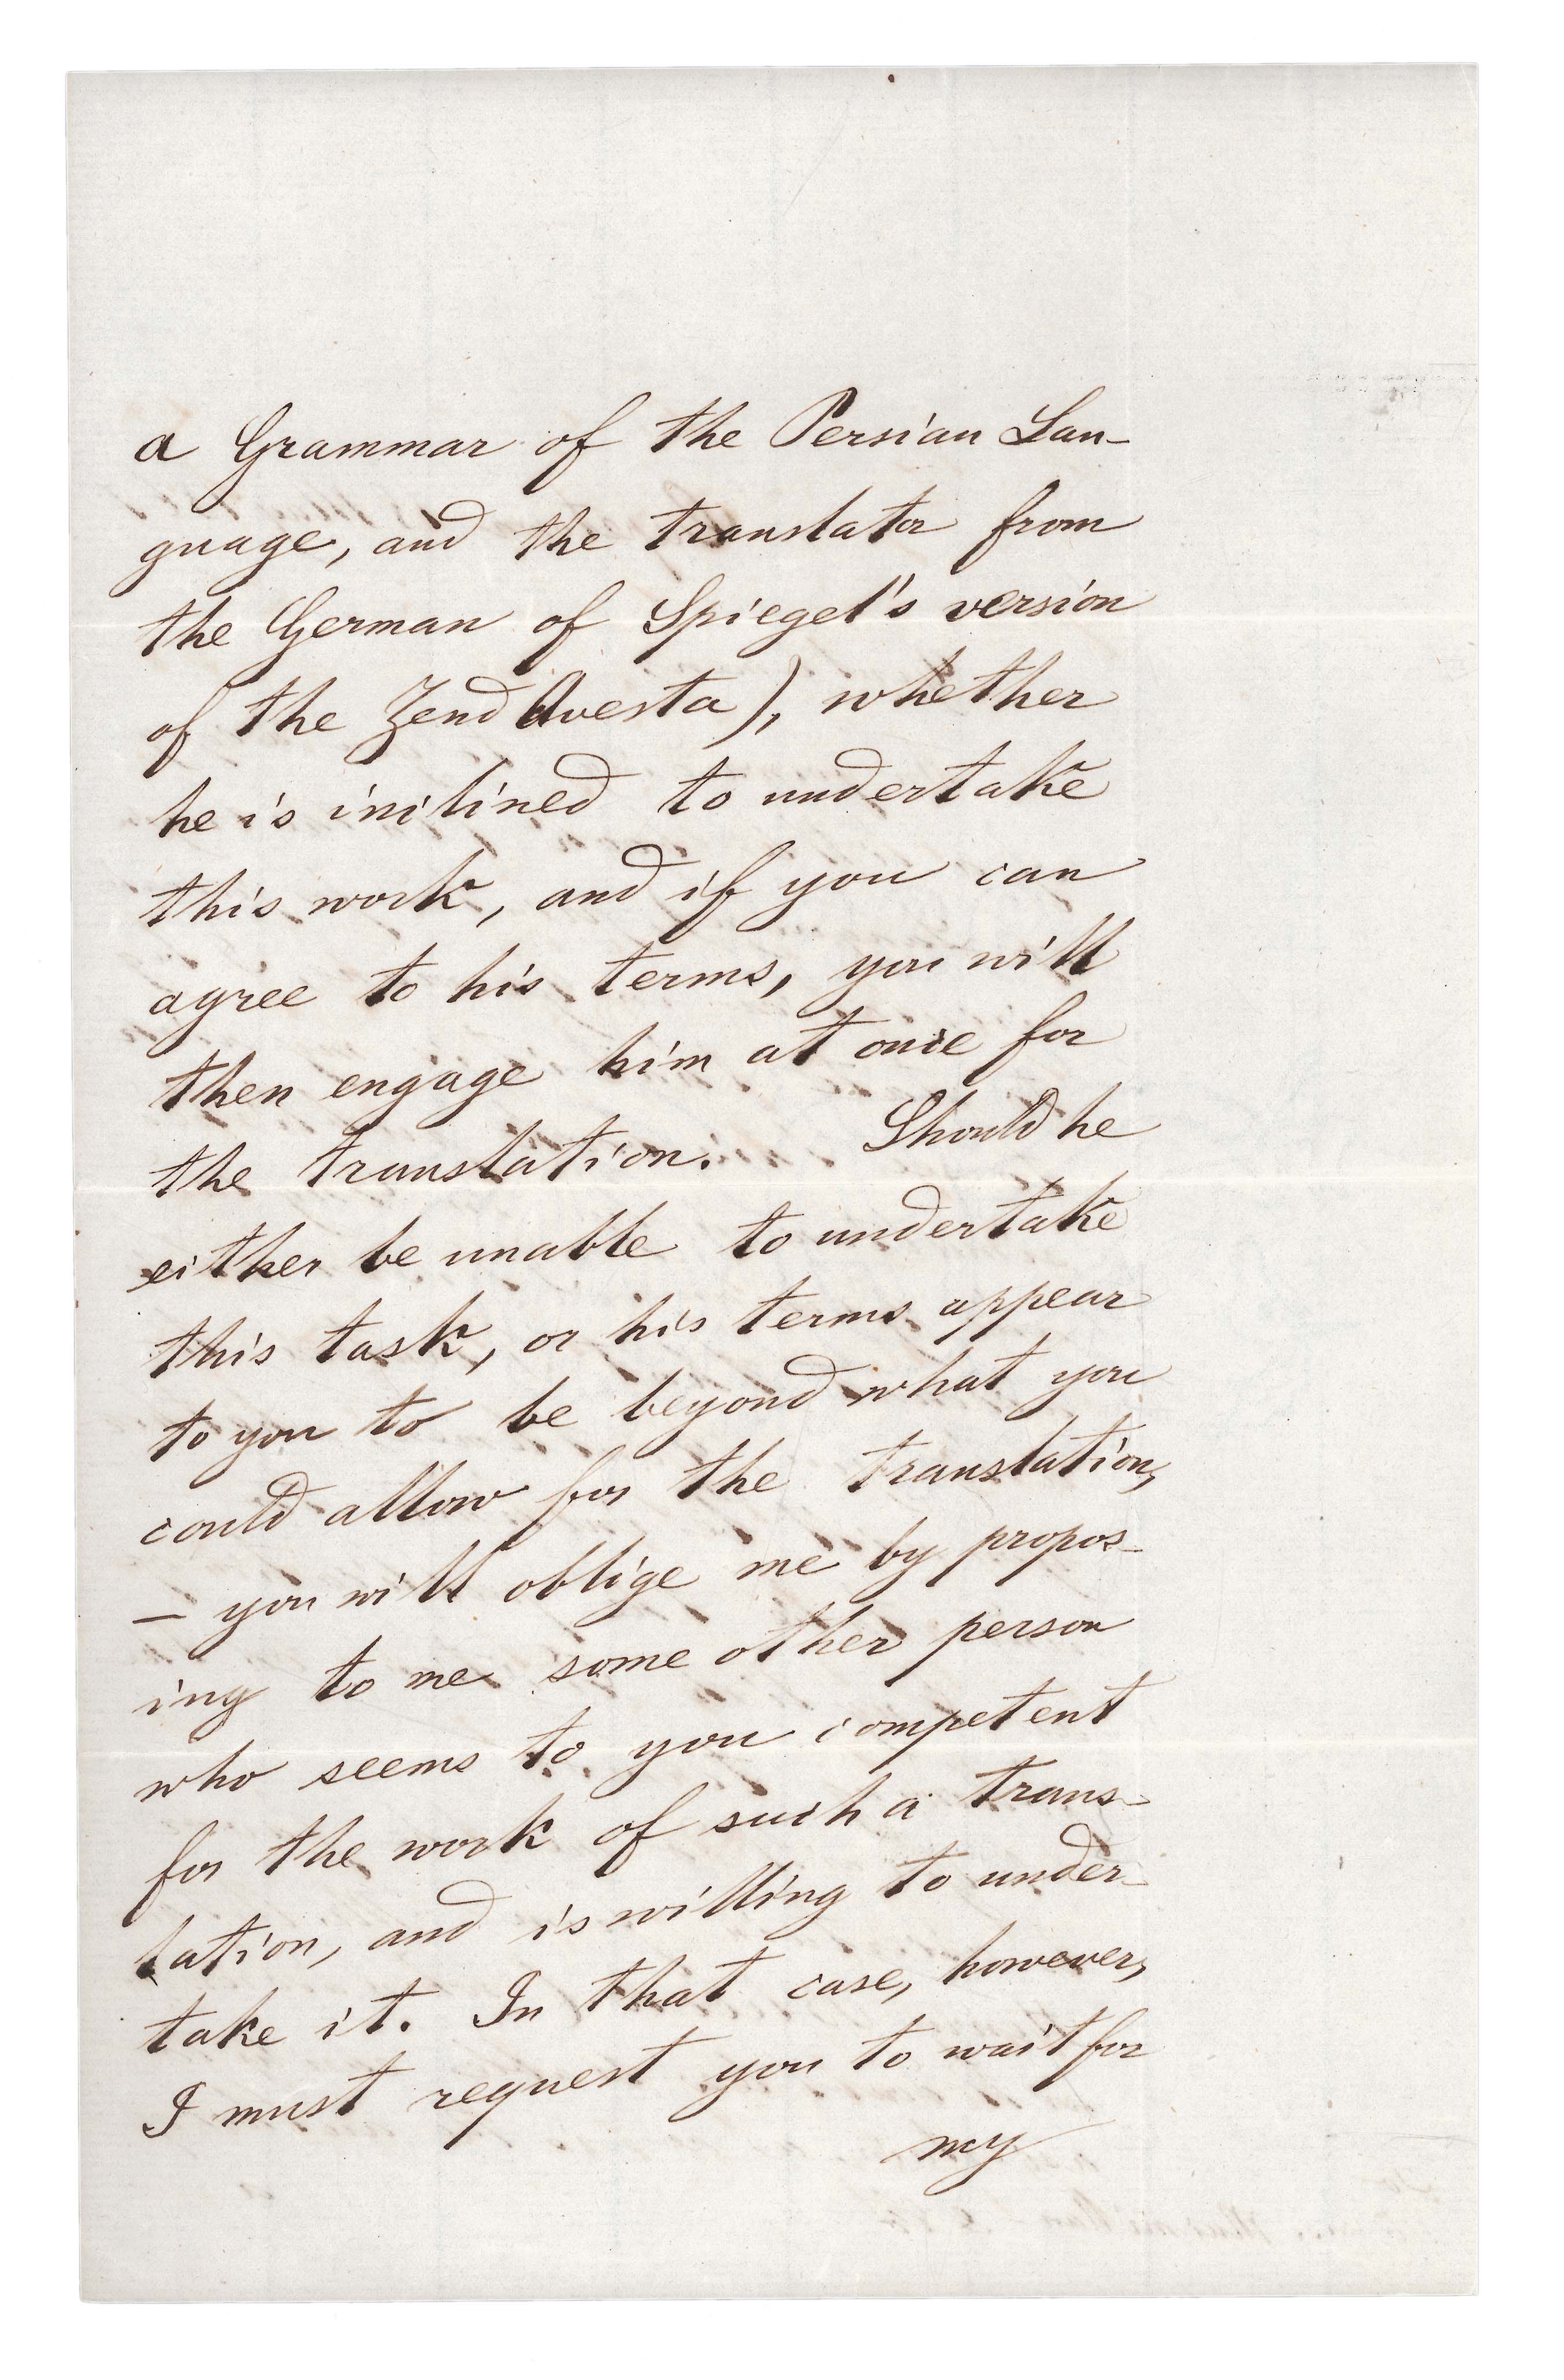 a Grammar of the Persian Lan-
guage, and the translator from
the German of Spiegel's version
of the Zend Avesta), whether
he is inclined to undertake
this work, and if you can
agree to his terms, you will
then engage him at once for
the translation. Should he
either be unable to undertake
this task, or his terms appear
to you to be beyond what you
could allow for the translation,
— you will oblige me by propos-
ing to me some other person
who seems to you competent
for the work of such a trans-
lation, and is willing to under-
take it. In that case, however,
I must request you to wait for
my